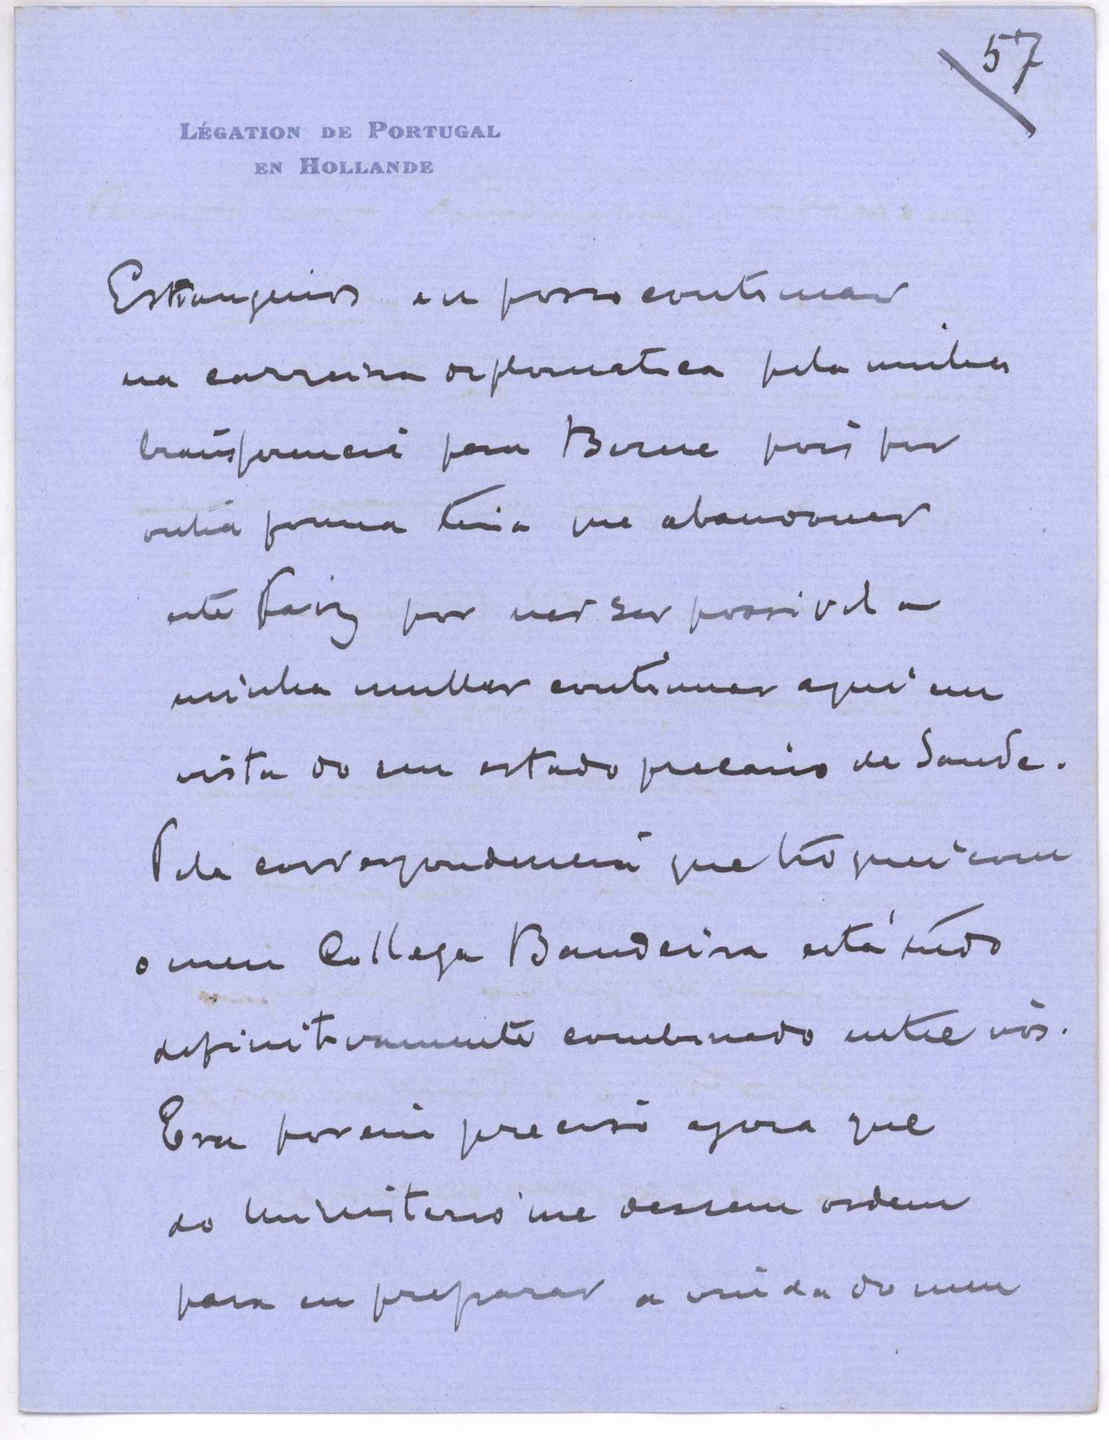 57
LÉGATION DE PORTUGAL
EN HOLLANDE
Estrangeiros eu posso continuar
na carreira diplomatica pela minha
transferencia para Berne pois por
outra forma teria que abandonar
este Paiz por não ser possivel a
minha mulher continuar aqui em
vista do seu estado precario de Saude.
Pela correspondencia que troquei com
o meu Collega Bandeira está tudo
definitivamente combinado entre nós.
Era porem preciso agora que
do Ministerio me dessem ordem
para eu preparar a vinda do meu